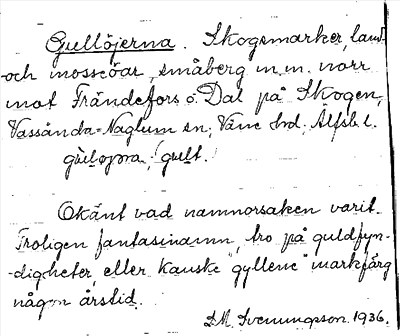 Gullöjerna. Skogsmarker, land-
och mosseöar, småberg m.m. norr
mot Frändefors o. Dal på Skogen,
Vassända-Naglum sn, Väne hd. Älfsb. l.
gult.
Okänt vad namnorsaken varit.
Troligen fantasinamn, tro på guldfyn-
digheter eller kanske "gyllene" markfärg
någon årstid.
D.M. Svenungsson. 1936.